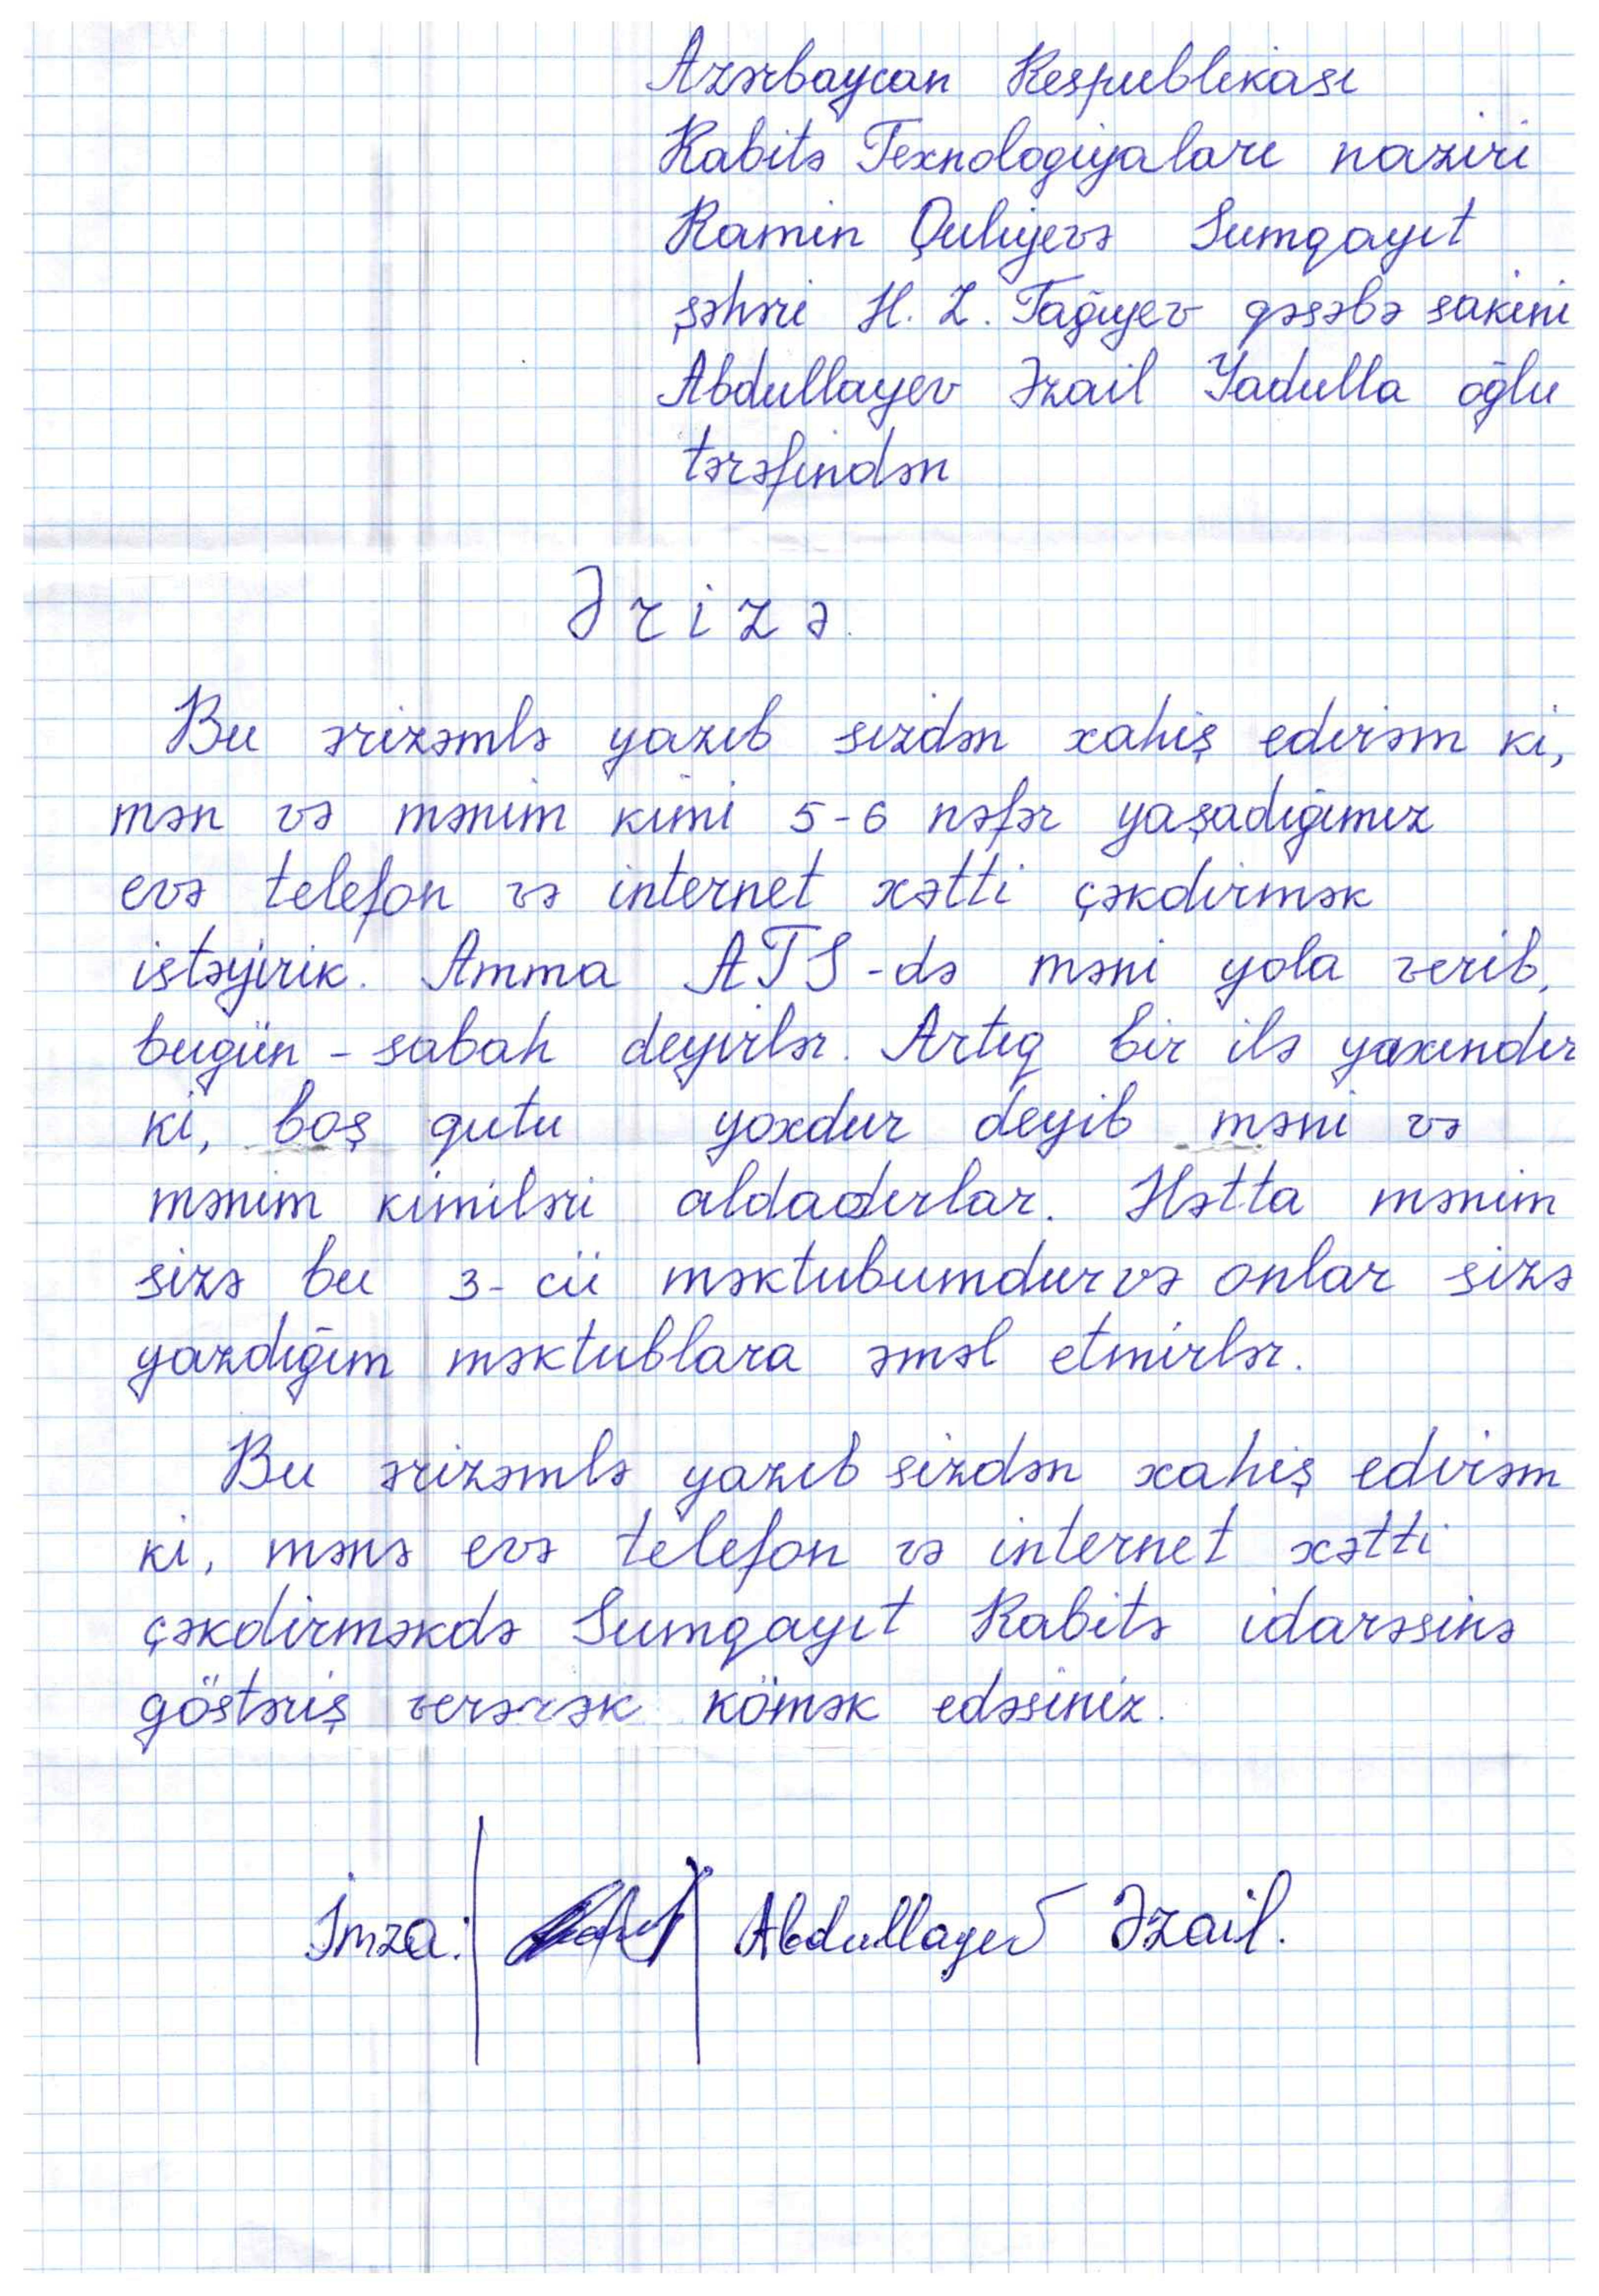 Azərbaycan Respublikası
Rabitə Texnologiyaları naziri
Ramin Quliyevə Sumqayıt
şəhəri H. Z. Tağıyev qəsəbə sakini
Abdullayev Əzail Yadulla oğlu
tərəfindən
Ərizə.
Bu ərizəmlə yazıb sizdən xahiş edirəm ki,
mən və mənim kimi 5-6 nəfər yaşadığımız
evə telefon və internet xətti çəkdirmək
istəyirik. Amma ATS-də məni yola verib,
bugün - sabah deyirlər. Artıq bir ilə yaxındır
ki, boş qutu yoxdur deyib məni və
mənim kimiləri aldadırlar. Hətta mənim
sizə bu 3-cü məktubumdur və onlar sizə
yazdığım məktublara əməl etmirlər.
Bu ərizəmlə yazıb sizdən xahiş edirəm
ki, mənə evə telefon və internet xətti
çəkdirməkdə Sumqayıt Rabitə idarəsinə
göstəriş verərək kömək edəsiniz.
İmza: Abdullayev Əzail.